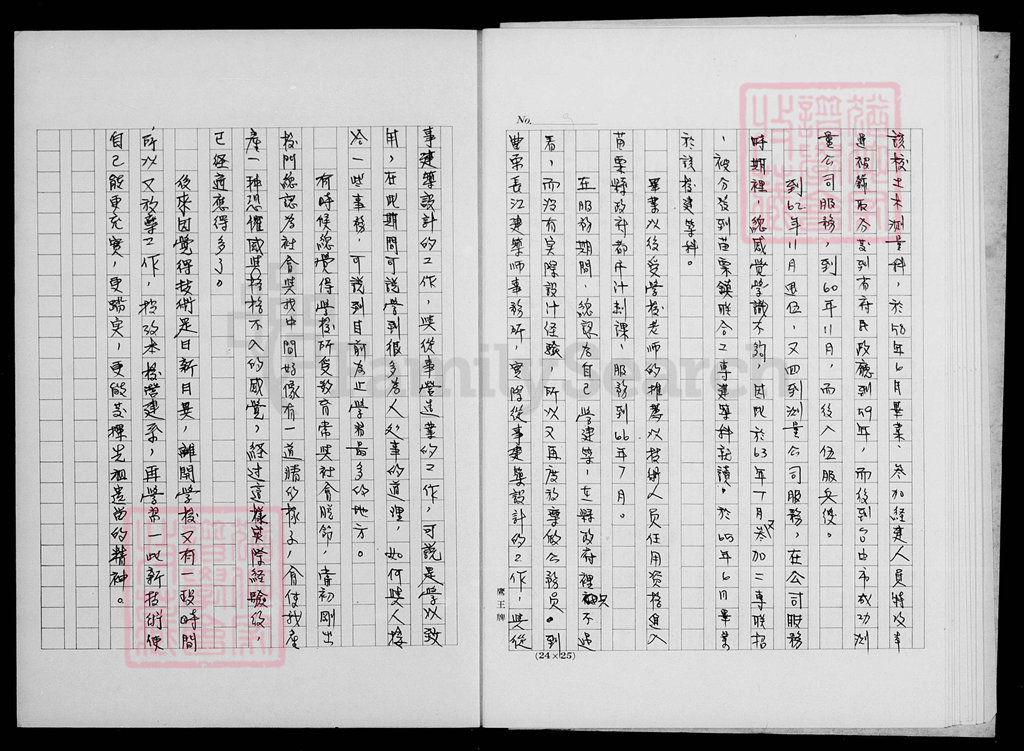 No. 9
該校土木測量科,於58年6月畢業、參加經建人員特攻幸
運被錄取分發到省府民政廳到59年,而後到台中市成功測
量公司服務,到60年11月,而後入伍服兵役。
到62年11月退伍,又回到測量公司服務,在公司服務
時期裡,總感覺學識不夠,因此於63年7月又參加二專聯招
,被分發到苗栗鎮聯合工專建築科就讀。於65年6月畢業
於該校建築科。
畢業以後受學校老師的推薦以技術人員任用資格進入
苗栗縣政府都市計劃課,服務到66年7月。
在服務期間,總認為自己學建築,在縣政府裡只不過
看,而沒有實際設計經驗,所以又再度放棄做公務員。到
苗栗長江建築師事務所,實際從事建築設計的工作,與從
(24×25)
鷹王牌
事建築設計的工作,與從事營造業的工作,可說是學以致
用,在此期間可說學到很多為人处事的道理,如何與人接
洽一些事務,可說到目前為止學習最多的地方。
有時候總覺得學校所受教育常與社會脫節,當初剛出
校門總認為社會與我中間好像有一道牆的樣子,會使我產
產一种恐懼感與格格不入的感覺,經过這樣实際經驗后,
已經適應得多了。
後來因覺得技術是日新月異,離開學校又有一段時間
,所以又放棄工作,投攻本校營建系,再學習一些新技術使
自己能更充实,更踏实,更能發揮先祖遺留的精神。
FamilySearch